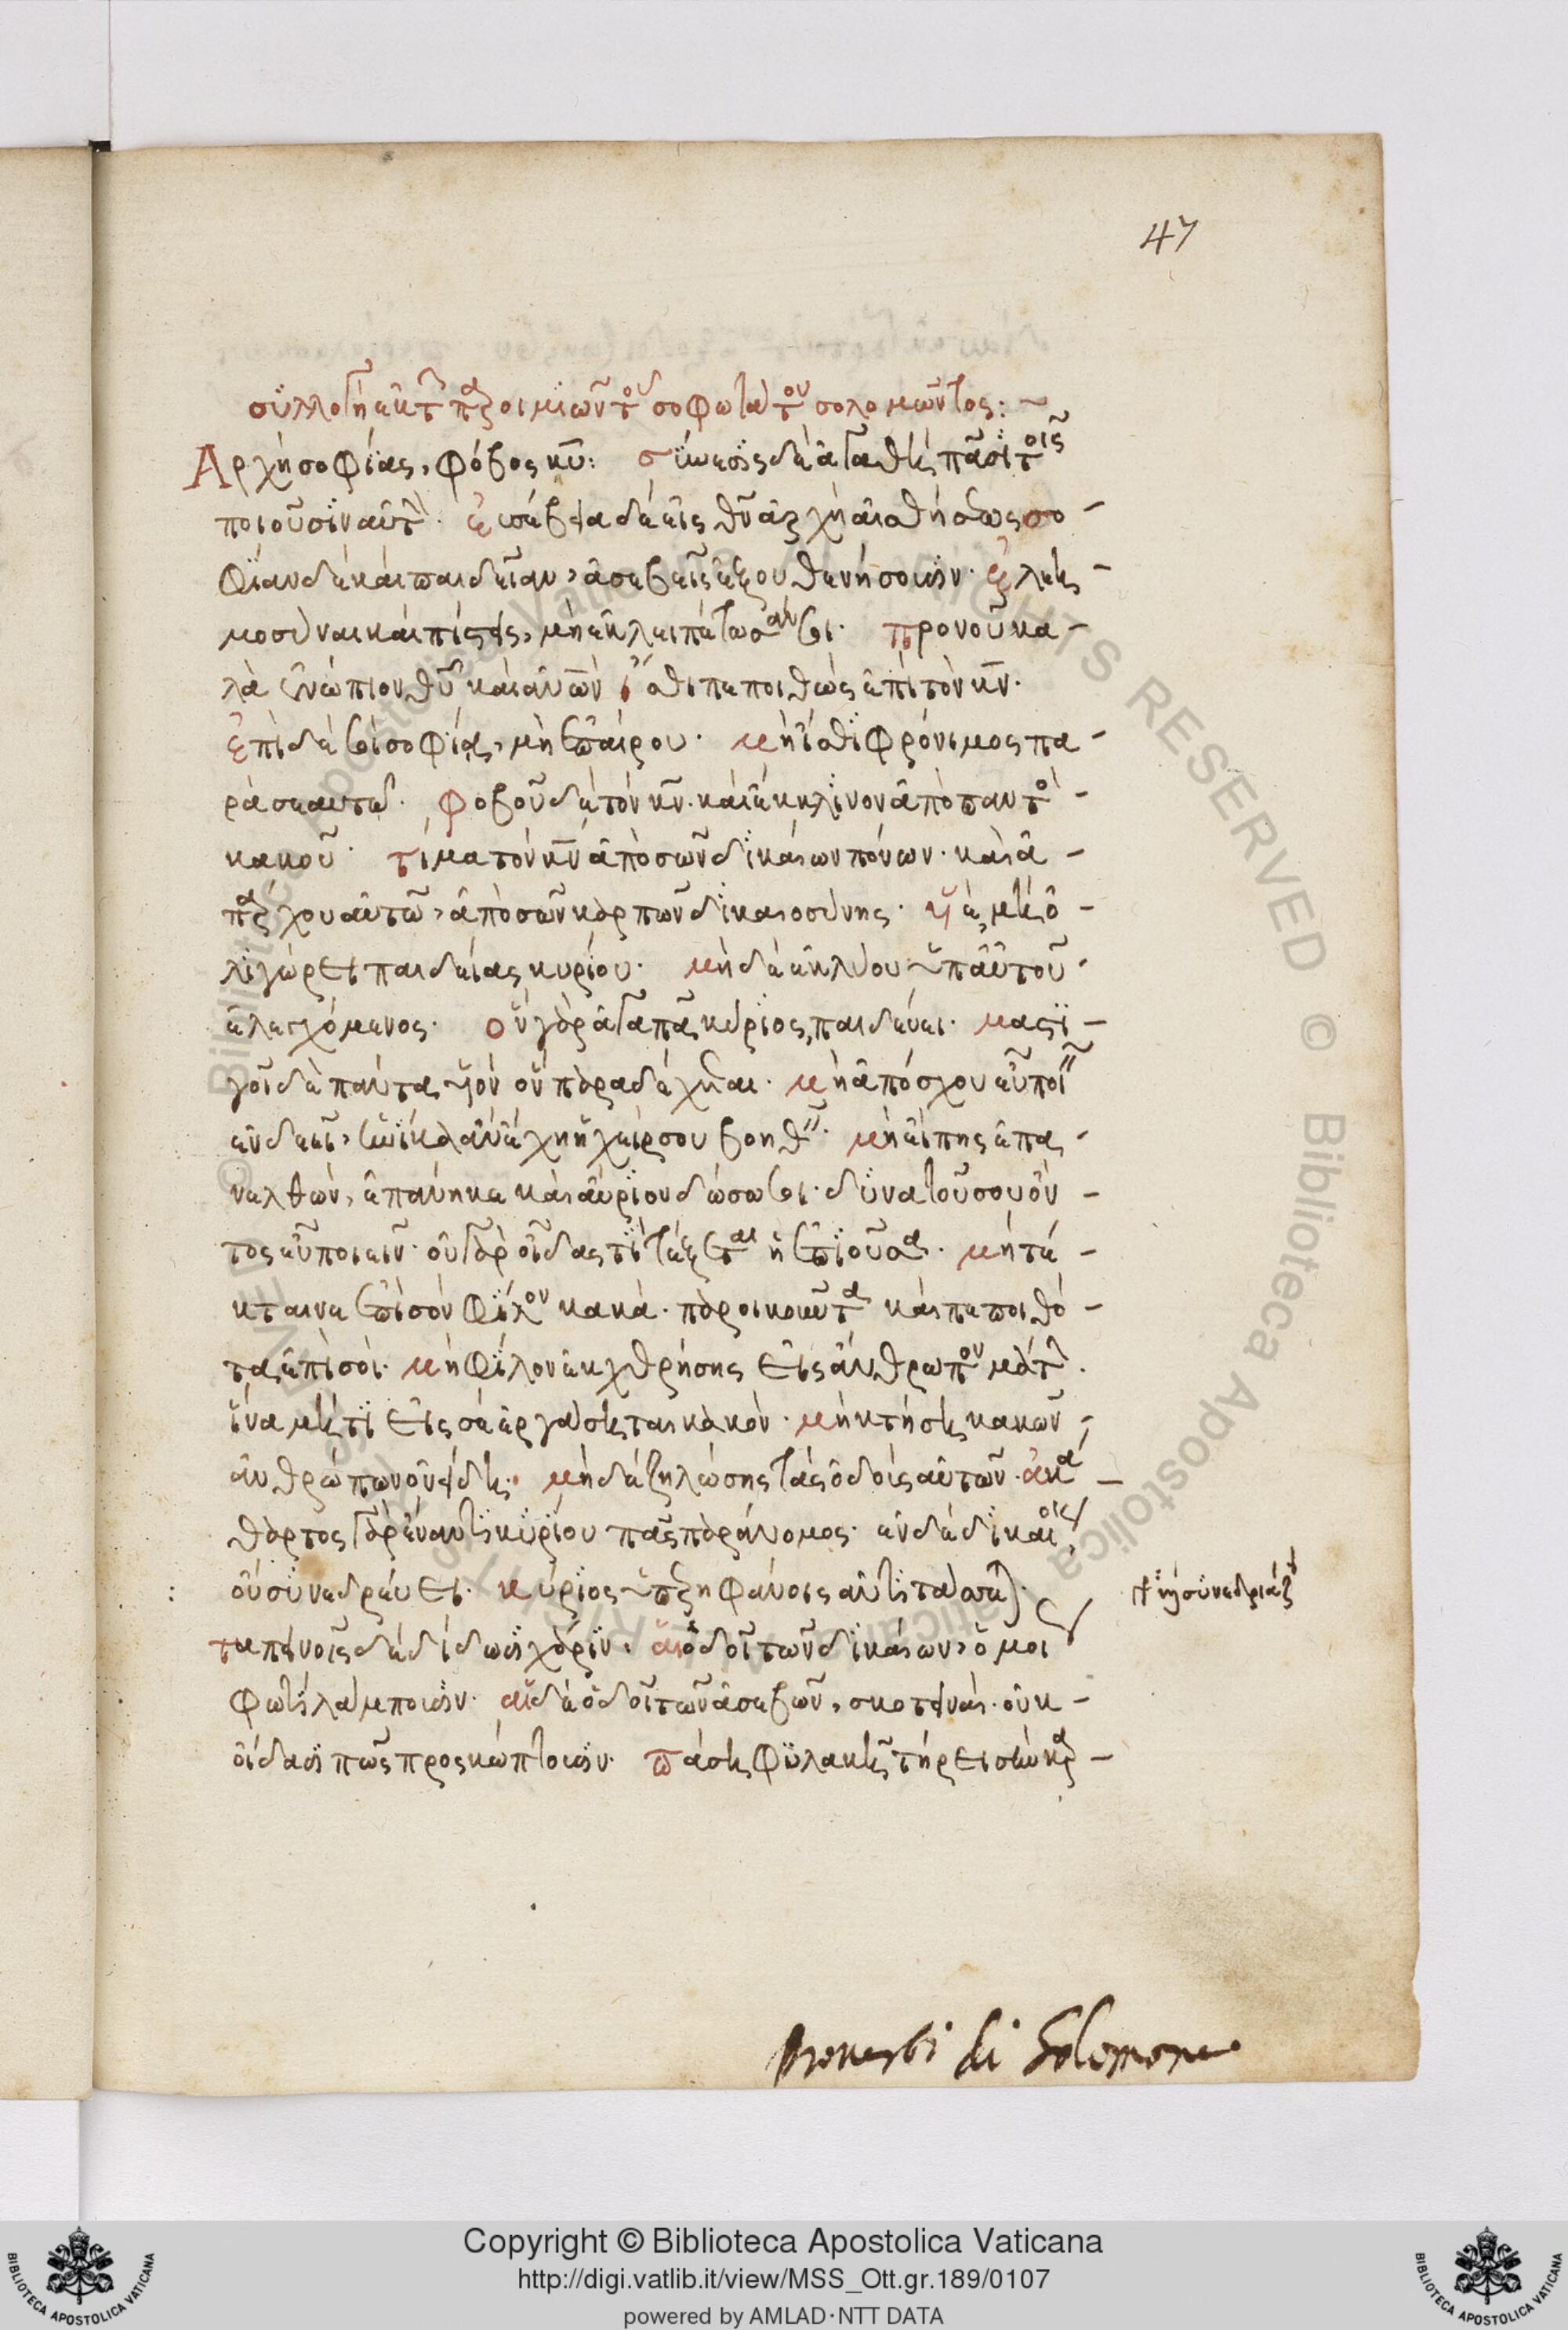 47
συλλογὴ ἐκ τῶν παροιμιῶν τοῦ σοφωτάτου σολομῶντος: ~
Ἀρχὴ σοφίας, φόβος κυ: σύνεσις δὲ ἀγαθὴ πᾶσι τοῖς
ποιοῦσιν αὐτήν. εὐσέβεια δὲ εἰς θν ἀρχὴ αἰσθήσεως σο-
φίαν δὲ καὶ παιδείαν, ἀσεβεῖς ἐξουθενήσουσιν. ἐλεη-
μοσύναι καὶ πίστεις, μὴ ἐκλειπέτωσάν σοι. προνοῦ κα-
λὰ ἐνώπιον θυ καὶ ἀνων ἴσθι πεποιθὼς ἐπὶ τὸν κν.
ἐπὶ δὲ σῇ σοφίᾳ, μὴ ἐπαίρου. μὴ ἴσθι φρόνιμος πα-
ρὰ σεαυτῷ. φοβοῦ δὲ τὸν κν. καὶ ἔκκλινον ἀπὸ παντὸς
κακοῦ. τίμα τὸν κν ἀπὸ σῶν δικαίων πόνων. καὶ ἀ-
πάρχου αὐτῶ, ἀπὸ σῶν καρπῶν δικαιοσύνης. υἱὲ, μὴ ὀ-
λιγώρει παιδείας κυρίου. μὴ δὲ ἐκλύου ὑπ' αὐτοῦ
ἐλεγχόμενος. ὃν γὰρ ἀγαπᾶ κύριος, παιδεύει. μαστι-
γοῖ δὲ πάντα υἱὸν ὃν παραδέχεται. μὴ ἀπόσχου εὖ ποιεῖν
ἐνδεεῖ, ἡνίκα ἂν ἔχη ἡ χείρ σου βοηθεῖν. μὴ εἴπης ἐπα-
νελθὼν, ἐπάνηκε καὶ αὔριον δώσω σοι. δυνατοῦ σου ὄν-
τος εὖ ποιεῖν. οὐ γὰρ οἶδας τί τέξεται ἡ ἐπιοῦσα. μὴ τέ-
κταινε ἐπὶ σὸν φίλον κακά. παροικοῦντα καὶ πεποιθό-
τα ἐπὶ σοί. μὴ φίλον ἐκχθρήσης εἰς ἄνθρωπον μάτην.
ἵνα μή τι εἰς σὲ ἐργάσηται κακόν. μὴ κτήση κακῶν
ἀνθρώπων ὀνείδη. μὴ δὲ ζηλώσης τὰς ὁδοὺς αὐτῶν. ἀκά-
θαρτος γὰρ ἔναντι κυρίου πᾶς παράνομος. ἐν δὲ δικαίοις
οὐ συνεδρεύει. κύριος ὑπερηφάνοις ἀντιτάσσεται.
ταπεινοῖς δὲ δίδωσι χάριν. αἱ ὁδοὶ τῶν δικαίων, ὅμοι
φωτὶ λάμπουσιν. αἱ δὲ ὁδοὶ τῶν ἀσεβῶν, σκοτειναί. οὐκ
οἴδασι πῶς προσκώπτουσιν. πάση φυλακῆ τήρει σὴν καρ-
Proverbi di Solomone
Copyright © Biblioteca Apostolica Vaticana
http://digi.vatlib.it/view/MSS_Ott.gr.189/0107
powered by AMLAD·NTT DATA